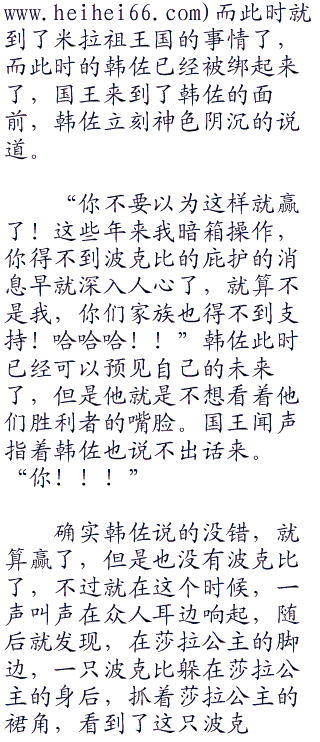 www.heihei66.com)而此时就
到了米拉祖王国的事情了，
而此时的韩佐已经被绑起来
了，国王来到了韩佐的面
前，韩佐立刻神色阴沉的说
道。
“你不要以为这样就赢
了！这些年来我暗箱操作，
你得不到波克比的庇护的消
息早就深入人心了，就算不
是我，你们家族也得不到支
持！哈哈哈！！”韩佐此时
已经可以预见自己的未来
了，但是他就是不想看着他
们胜利者的嘴脸。国王闻声
指着韩佐也说不出话来。
“你！！！”
确实韩佐说的没错，就
算赢了，但是也没有波克比
了，不过就在这个时候，一
声叫声在众人耳边响起，随
后就发现，在莎拉公主的脚
边，一只波克比躲在莎拉公
主的身后，抓着莎拉公主的
裙角，看到了这只波克